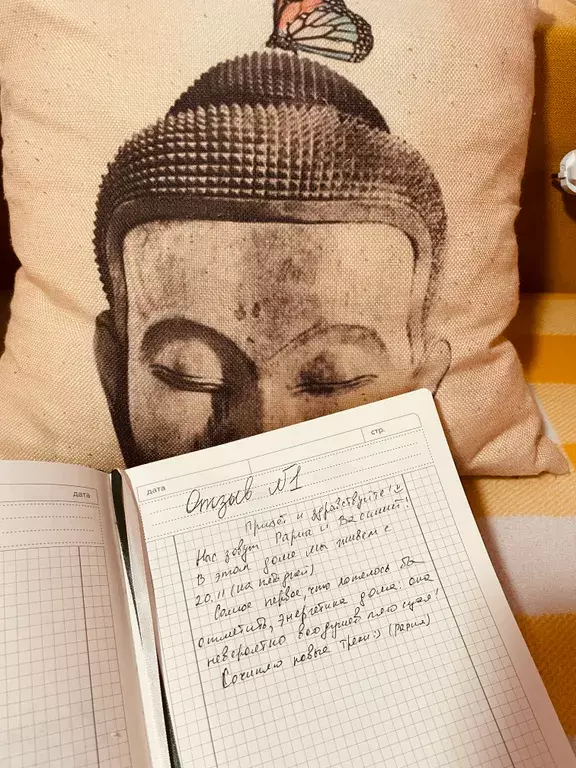 дата
дата
стр.
Отзыв №1
Привет и здравствуйте!
Нас зовут Рария и Василий!
В этом доме мы живем с
20.11 (на пять дней)
Самое первое, что хотелось бы
отметить, энергетика дома: она
невероятно воодушевляющая!
Сочиняю новые треки :) (Рария)